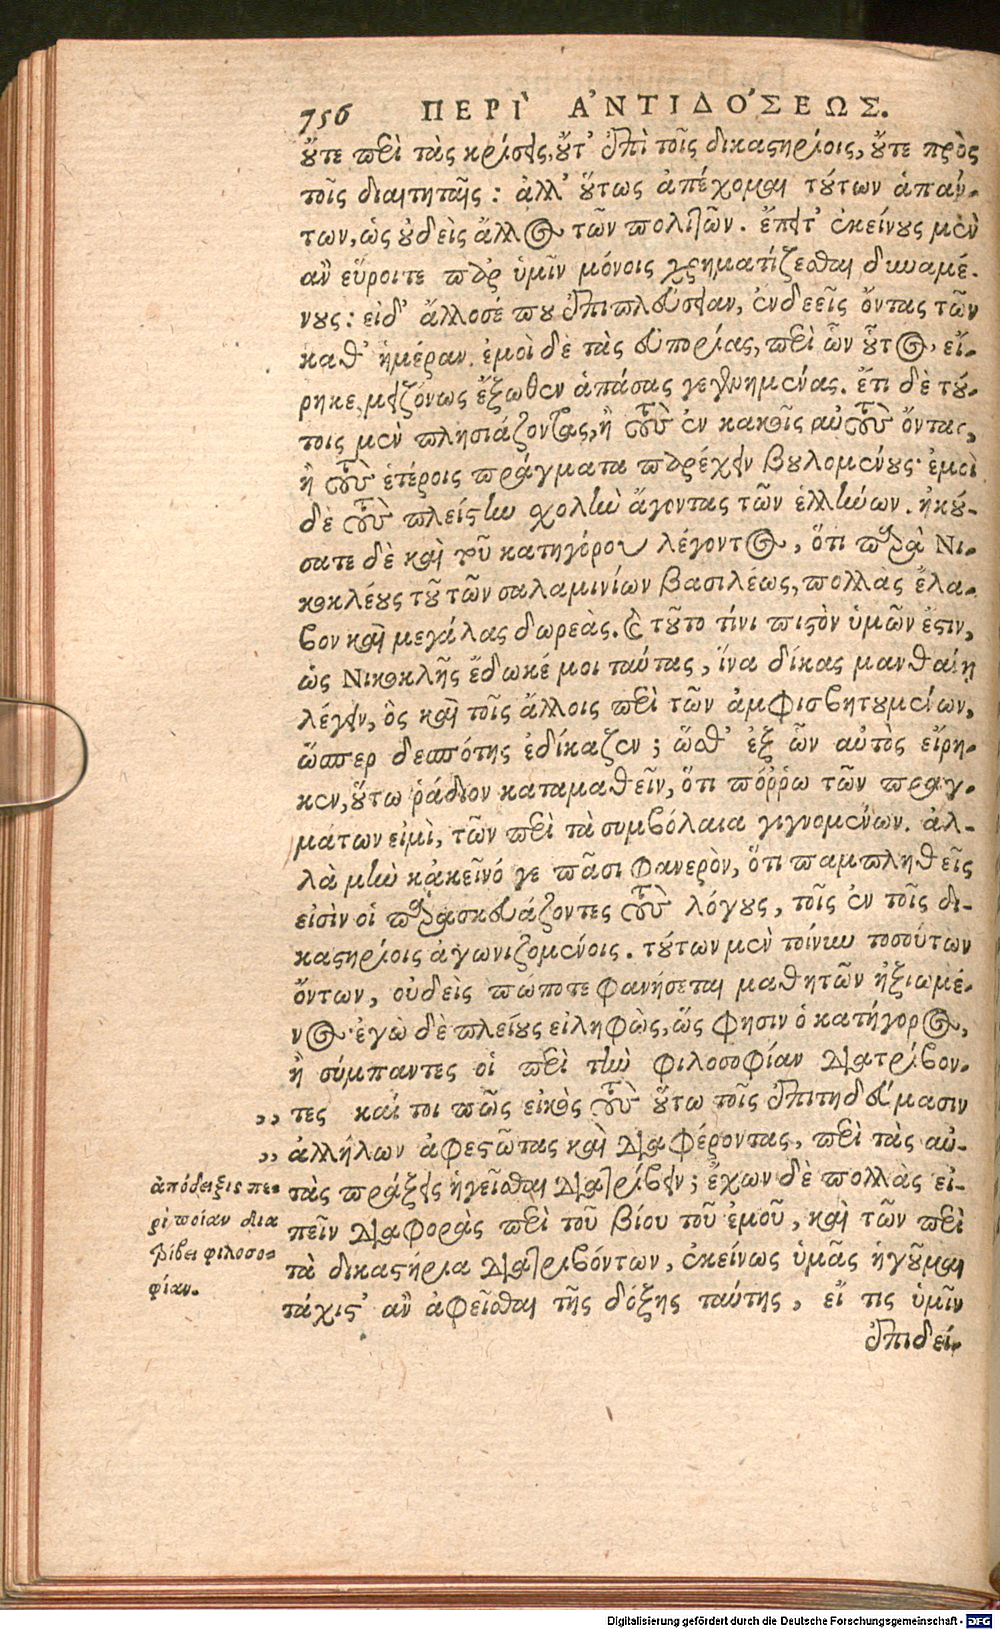 756 ΠΕΡῚ ἈΝΤΙΔΌΣΕΩΣ.
οὔτε περὶ τὰς κρίσεις, οὔτ' ἐπὶ τοῖς δικαστηρίοις, οὔτε πρὸς
τοῖς διαιτηταῖς: ἀλλ' οὕτως ἀπέχομαι τούτων ἁπάν-
των, ὡς οὐδεὶς ἄλλος τῶν πολιτῶν. ἔπειτ' ἐκείνους μὲν
ἂν εὕροιτε παρ' ὑμῖν μόνοις χρηματίζεσθαι δυναμέ-
νους: εἰ δ' ἄλλοσέ που ἐπιπλεύσειαν, ἐνδεεῖς ὄντας τῶν
καθ' ἡμέραν. ἐμοὶ δὲ τὰς εὐπορίας, περὶ ὧν οὗτος, εἴ-
ρηκε, μειζόνως ἔξωθεν ἁπάσας γεγενημένας. ἔτι δὲ τού-
τοις μὲν πλησιάζοντας, ἢ τοὺς ἐν κακοῖς αὐτοὺς ὄντας,
ἢ τοὺς ἑτέροις πράγματα παρέχειν βουλομένους· ἐμοὶ
δὲ τοὺς πλείστην σχολὴν ἄγοντας τῶν ἑλλήνων. ἠκού-
σατε δὲ καὶ τοῦ κατηγόρου λέγοντος, ὅτι παρὰ Νι-
κοκλέους τοῦ τῶν σαλαμινίων βασιλέως, πολλὰς ἔλα-
βον καὶ μεγάλας δωρεάς. καὶ τοῦτο τίνι πιστὸν ὑμῶν ἐστιν,
ὡς Νικοκλῆς ἔδωκέ μοι ταύτας, ἵνα δίκας μανθάνῃ
λέγειν, ὃς καὶ τοῖς ἄλλοις περὶ τῶν ἀμφισβητουμένων,
ὥσπερ δεσπότης ἐδίκαζεν; ὥσθ' ἐξ ὧν αὐτὸς εἴρη-
κεν, οὕτω ῥάδιον καταμαθεῖν, ὅτι πόῤῥω τῶν πραγ-
μάτων εἰμὶ, τῶν περὶ τὰ συμβόλαια γιγνομένων. ἀλ-
λὰ μὴν κἀκεῖνό γε πᾶσι φανερὸν, ὅτι παμπληθεῖς
εἰσὶν οἱ παρασκευάζοντες τοὺς λόγους, τοῖς ἐν τοῖς δι-
καστηρίοις ἀγωνιζομένοις. τούτων μὲν τοίνυν τοσούτων
ὄντων, οὐδεὶς πώποτε φανήσεται μαθητῶν ἠξιωμέ-
νος· ἐγὼ δὲ πλείους εἰληφὼς, ὥς φησιν ὁ κατήγορος,
ἢ σύμπαντες οἱ περὶ τὴν φιλοσοφίαν διατρίβον-
,, τες καί τοι πῶς εἰκὸς τοὺς οὕτω τοῖς ἐπιτηδεύμασιν
,, ἀλλήλων ἀφεστῶτας καὶ διαφέροντας, περὶ τὰς αὐ-
τὰς πράξεις ἡγεῖσθαι διατρίβειν; ἔχων δὲ πολλὰς εἰ-
πεῖν διαφορὰς περὶ τοῦ βίου τοῦ ἐμοῦ, καὶ τῶν περὶ
τὰ δικαστήρια διατριβόντων, ἐκείνως ὑμᾶς ἡγοῦμαι
τάχιστ' ἂν ἀφεῖσθαι τῆς δόξης ταύτης, εἴ τις ὑμῖν
ἐπιδεί-
ἀπόδειξις πε-
ρὶ ποίαν δια
τρίβει φιλοσο-
φίαν.
Digitalisierung gefördert durch die Deutsche Forschungsgemeinschaft - DFG